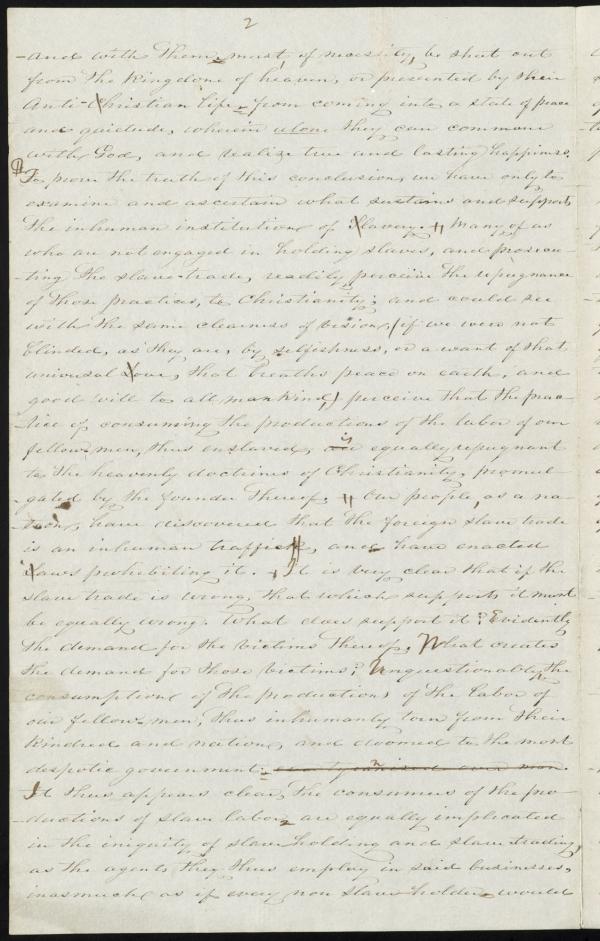 2
and with them must, of necessity, be shut out
from the kingdom of heaven, or prevented by their
Anti-Christian life, from coming into a state of peace
and quietude, wherein alone they can commune
with God, and realize true and lasting happiness.
To prove the truth of this conclusion, we have only to
examine and ascertain what sustains and supports
the inhuman institution of Slavery. Many of us
who are not engaged in holding slaves, and prosecu-
ting the slave-trade, readily perceive the repugnance
of those practices, to Christianity; and could see
with the same clearness of vision, (if we were not
blinded, as they are, by selfishness, or a want of that
universal Love, that breaths peace on earth, and
good will to all mankind,) perceive that the prac-
tice of consuming the productions of the labor of our
fellow-men, thus enslaved, is equally repugnant
to the heavenly doctrines of Christianity, promul-
gated by the founder thereof. Our people, as a na-
tion, have discovered that the foreign slave trade
is an inhuman traffick, and have enacted
Laws prohibiting it. It is very clear that if the
slave trade is wrong, that which supports it must
be equally wrong. What does support it? Evidently
the demand for the victims thereof. What creates
the demand for those victims? Unquestionably, the
consumption of the productions of the labor of
our fellow-men, thus inhumanly torn from their
kindred and nation, and doomed to the most
despotic government
It thus appears clear, the consumers of the pro-
ductions of slave labor, are equally implicated
in the iniquity of slave holding and slave trading,
as the agents they thus employ in said businesses,
inasmuch as if every non slave holder would